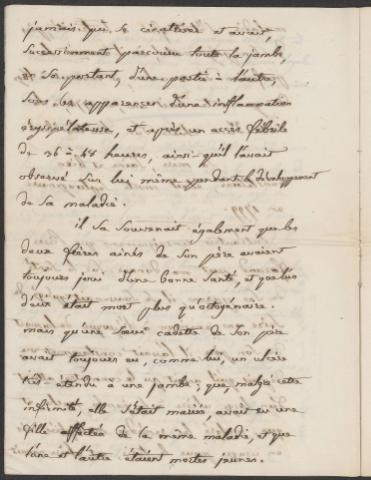 jamais pu se cicatriser et avait,
successivement parcouru toute la jambe,
en se portant, d'une partie à l'autre,
sous les apparences d'une inflammation
érysipélateuse, et après un accès fébrile
de 36 à 48 heures, ainsi qu'il l'avait
observé sur lui même pendant le développement
de sa maladie.
il se souvenait également que les
deux frères ainés de son père avaient
toujours joui d'une bonne santé, et que l'un
d'eux était mort plus qu'octogénaire.
mais qu'une sœur cadette de son père
avait toujours eu, comme lui, un ulcère
très étendu a une jambe; que malgré cette
infirmité, elle s'était mariée, avait eu une
fille affectée de la même maladie, et que
l'une et l'autre étaient mortes jeunes.